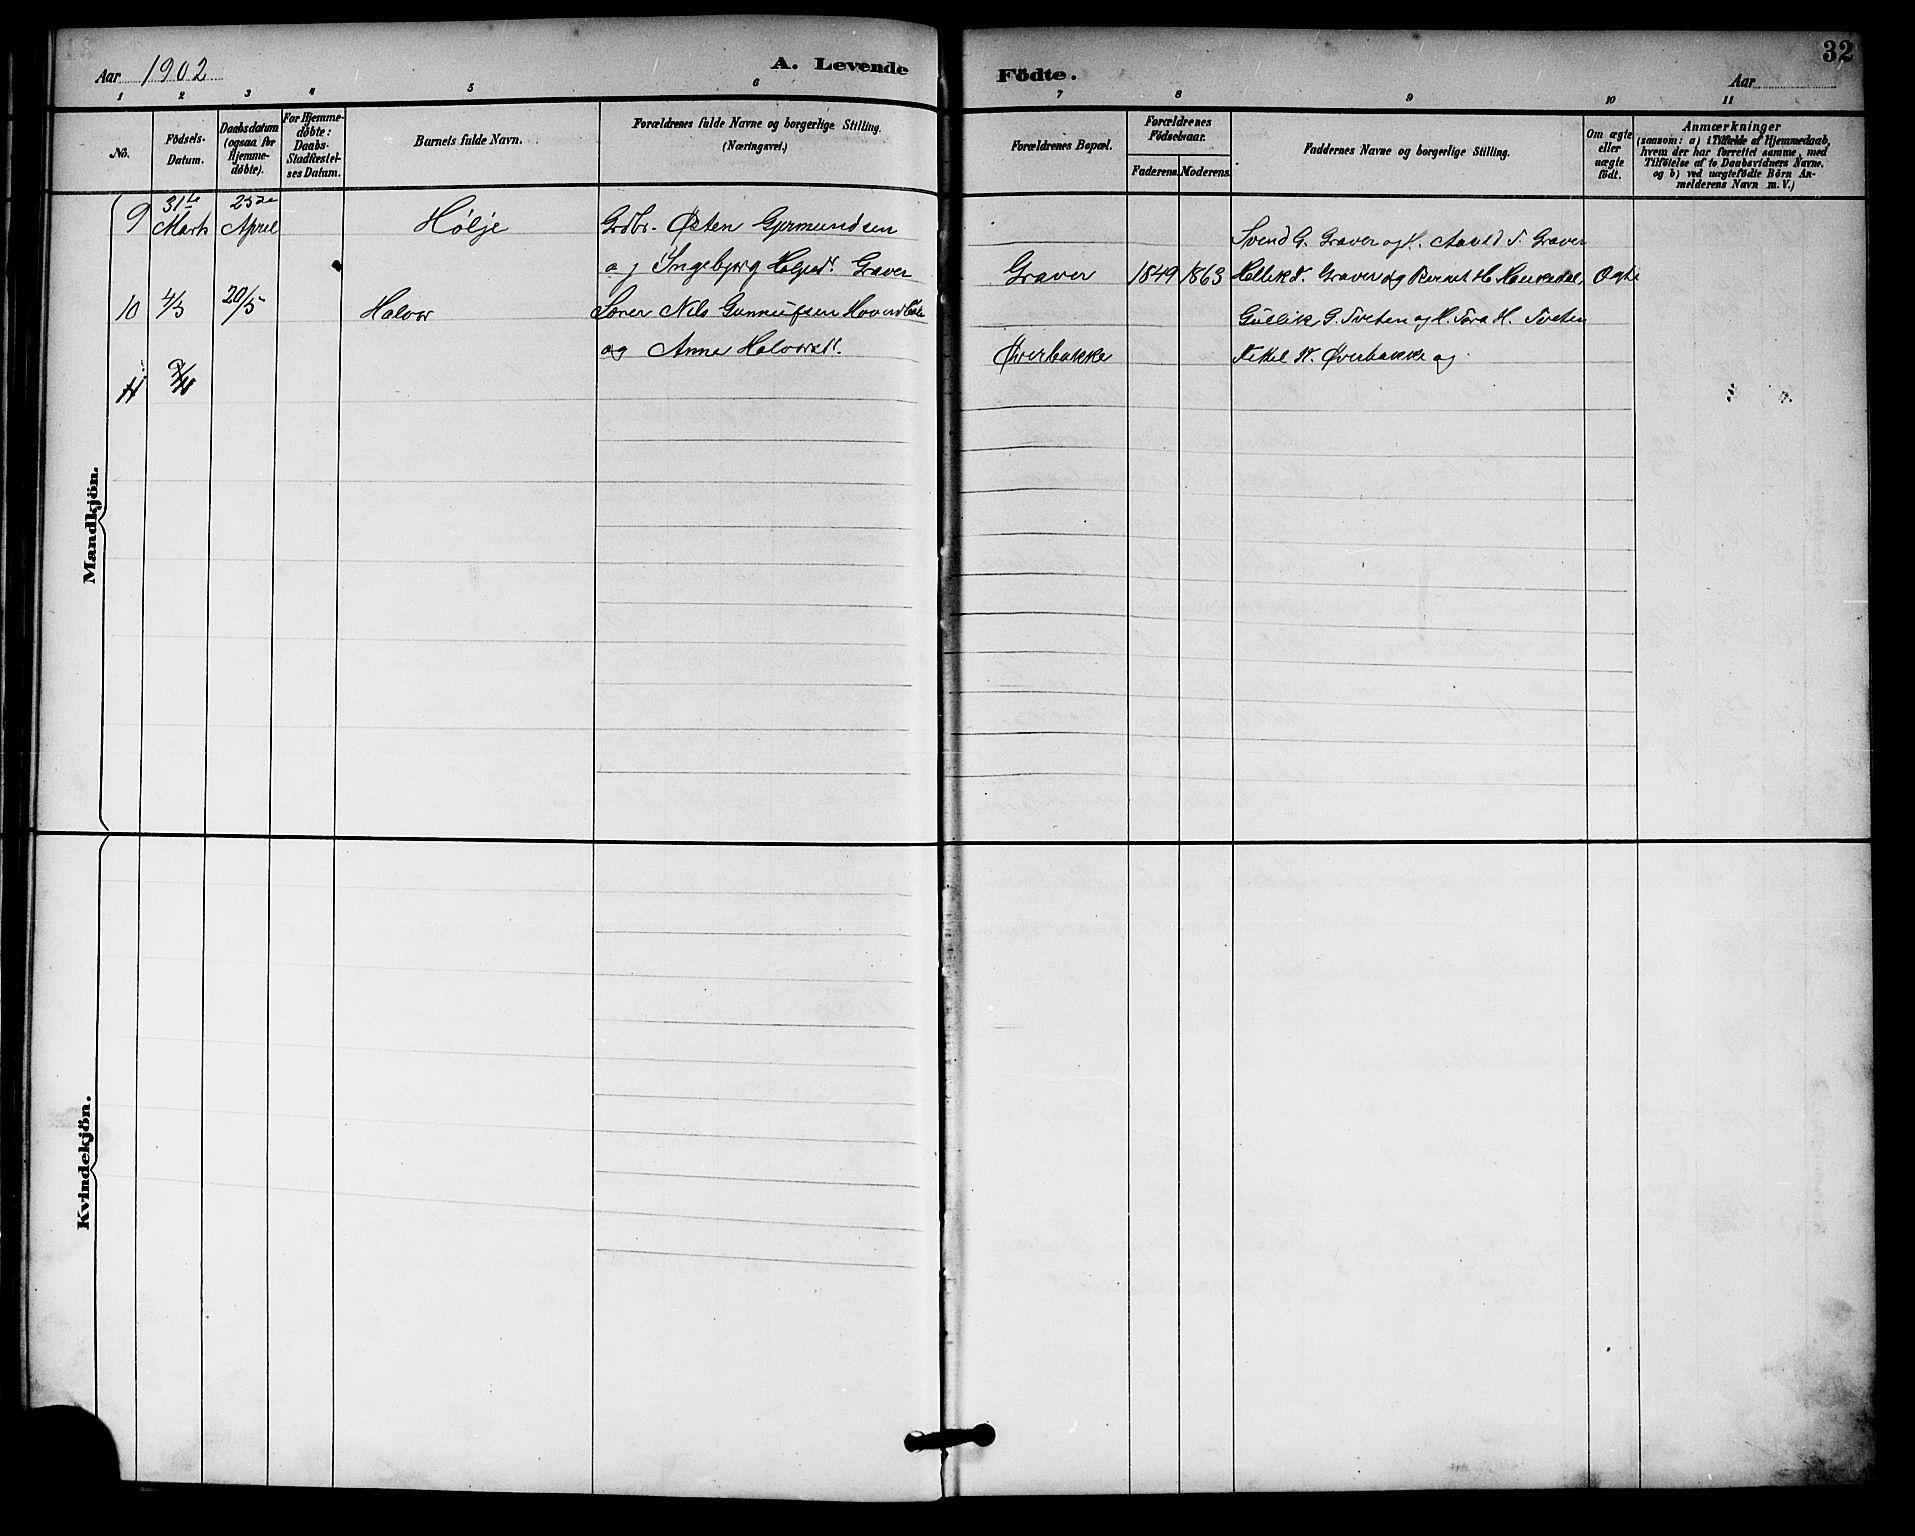 Aar 1902
A. Levende Födte.
Aar
32
1 2 3 4 5 6 7 8 9 10 11
No.
Födsels-
Datum.
Daabsdatum
(ogsaa for
Hjemme-
döbte).
For Hjemme-
döbte:
Daabs-
Stadfæstel-
ses Datum.
Barnets fulde Navn.
Forældrenes fulde Navne og borgerlige Stilling.
(Næringsvei.)
Forældrenes Bopæl.
Forældrenes
Födselsaar.
Faderens. Moderens.
Faddernes Navne og borgerlige Stilling.
Om ægte
eller
uægte
födt.
Anmærkninger
(saasom: a) i Tilfælde af Hjemmedaab,
hvem der har forrettet samme, med
Tilföielse af to Daabsvidners Navne,
og b) ved uægtefödte Börn An-
melderens Navn m. V.)
Mandkjön.
31te
9 Marts April Hølje Grdbr. Østen Gjermundsen Svend G. Graver og H. T. Graver
og Ingebjørg Holjesd. Graver Graver 1849 1863 Graver og H. Ægte
10 4/3 20/5 Halvor Nils Gunnulfsen Gullik G. Tveten og H. Tora H. Tveten
og Anne Halvorsd. Øverbakke N. Øverbakke og
11
Kvindekjön.